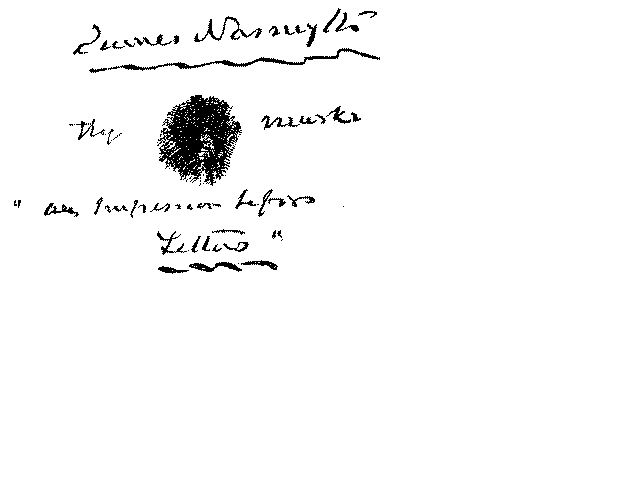 James Nasmyth
his mark
" an Impression before
Letters "